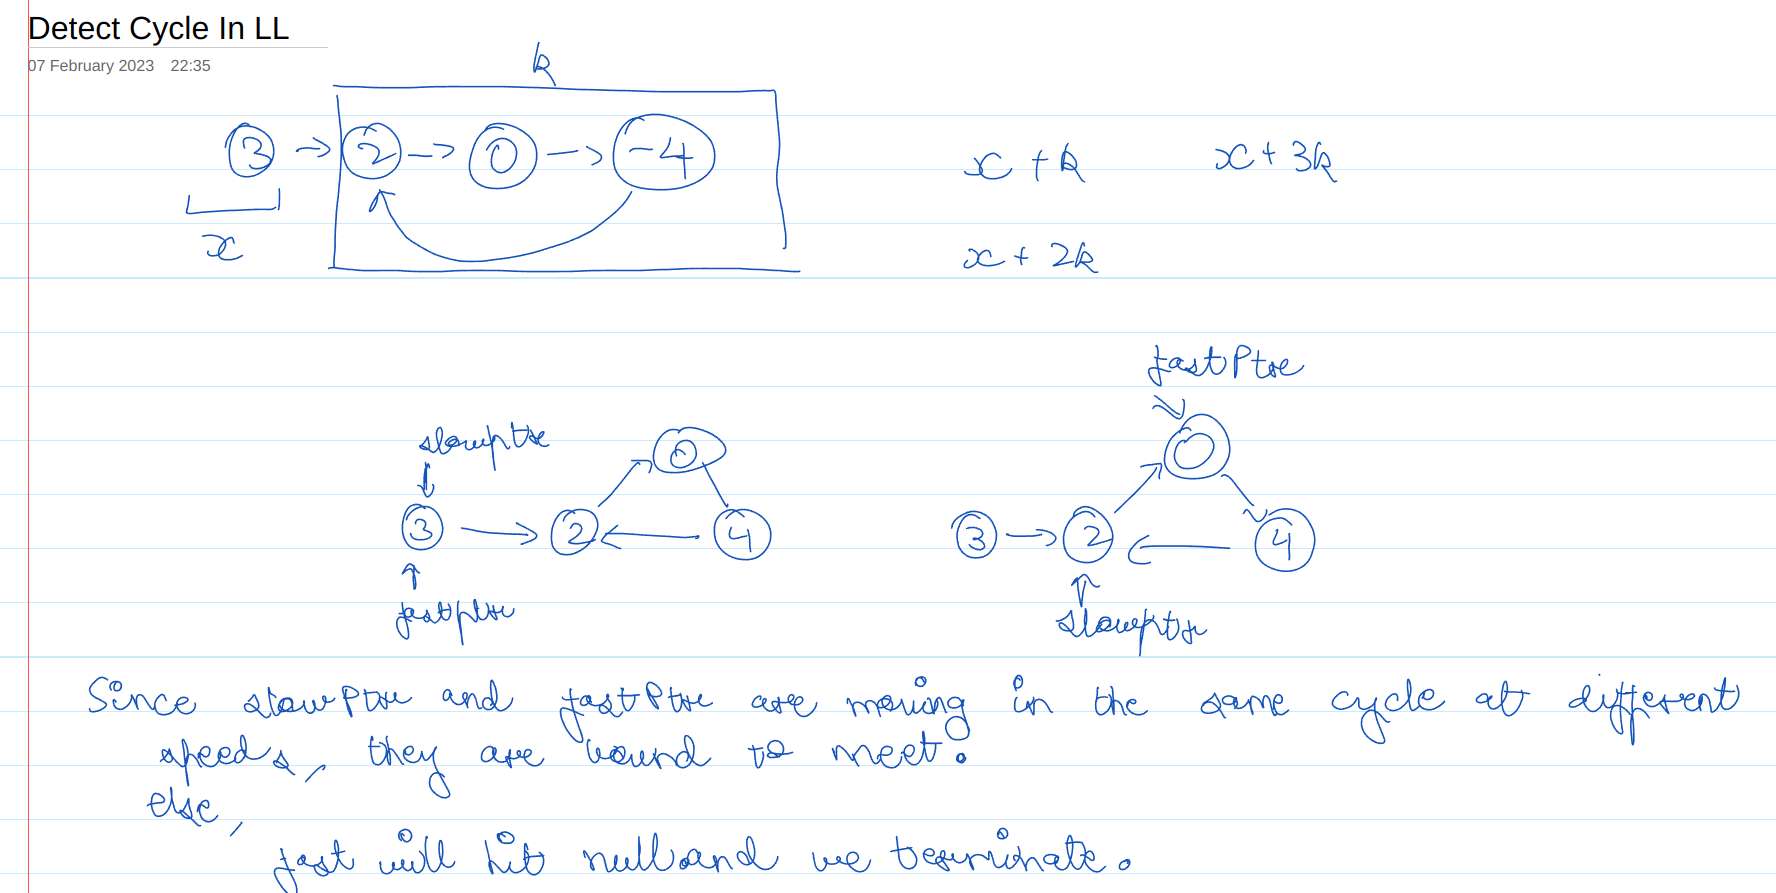 Detect Cycle In LL
07 February 2023 22:35
k
3 → 2 → 0 → -4
x
x + k x + 3k
x + 2k
fastPtr
slowptr
0 0
3 → 2 ← 4 3 → 2 ← 4
fastptr slowptr
Since slowPtr and fastPtr are moving in the same cycle at different
speeds, they are bound to meet.
else,
fast will hit null and we terminate.